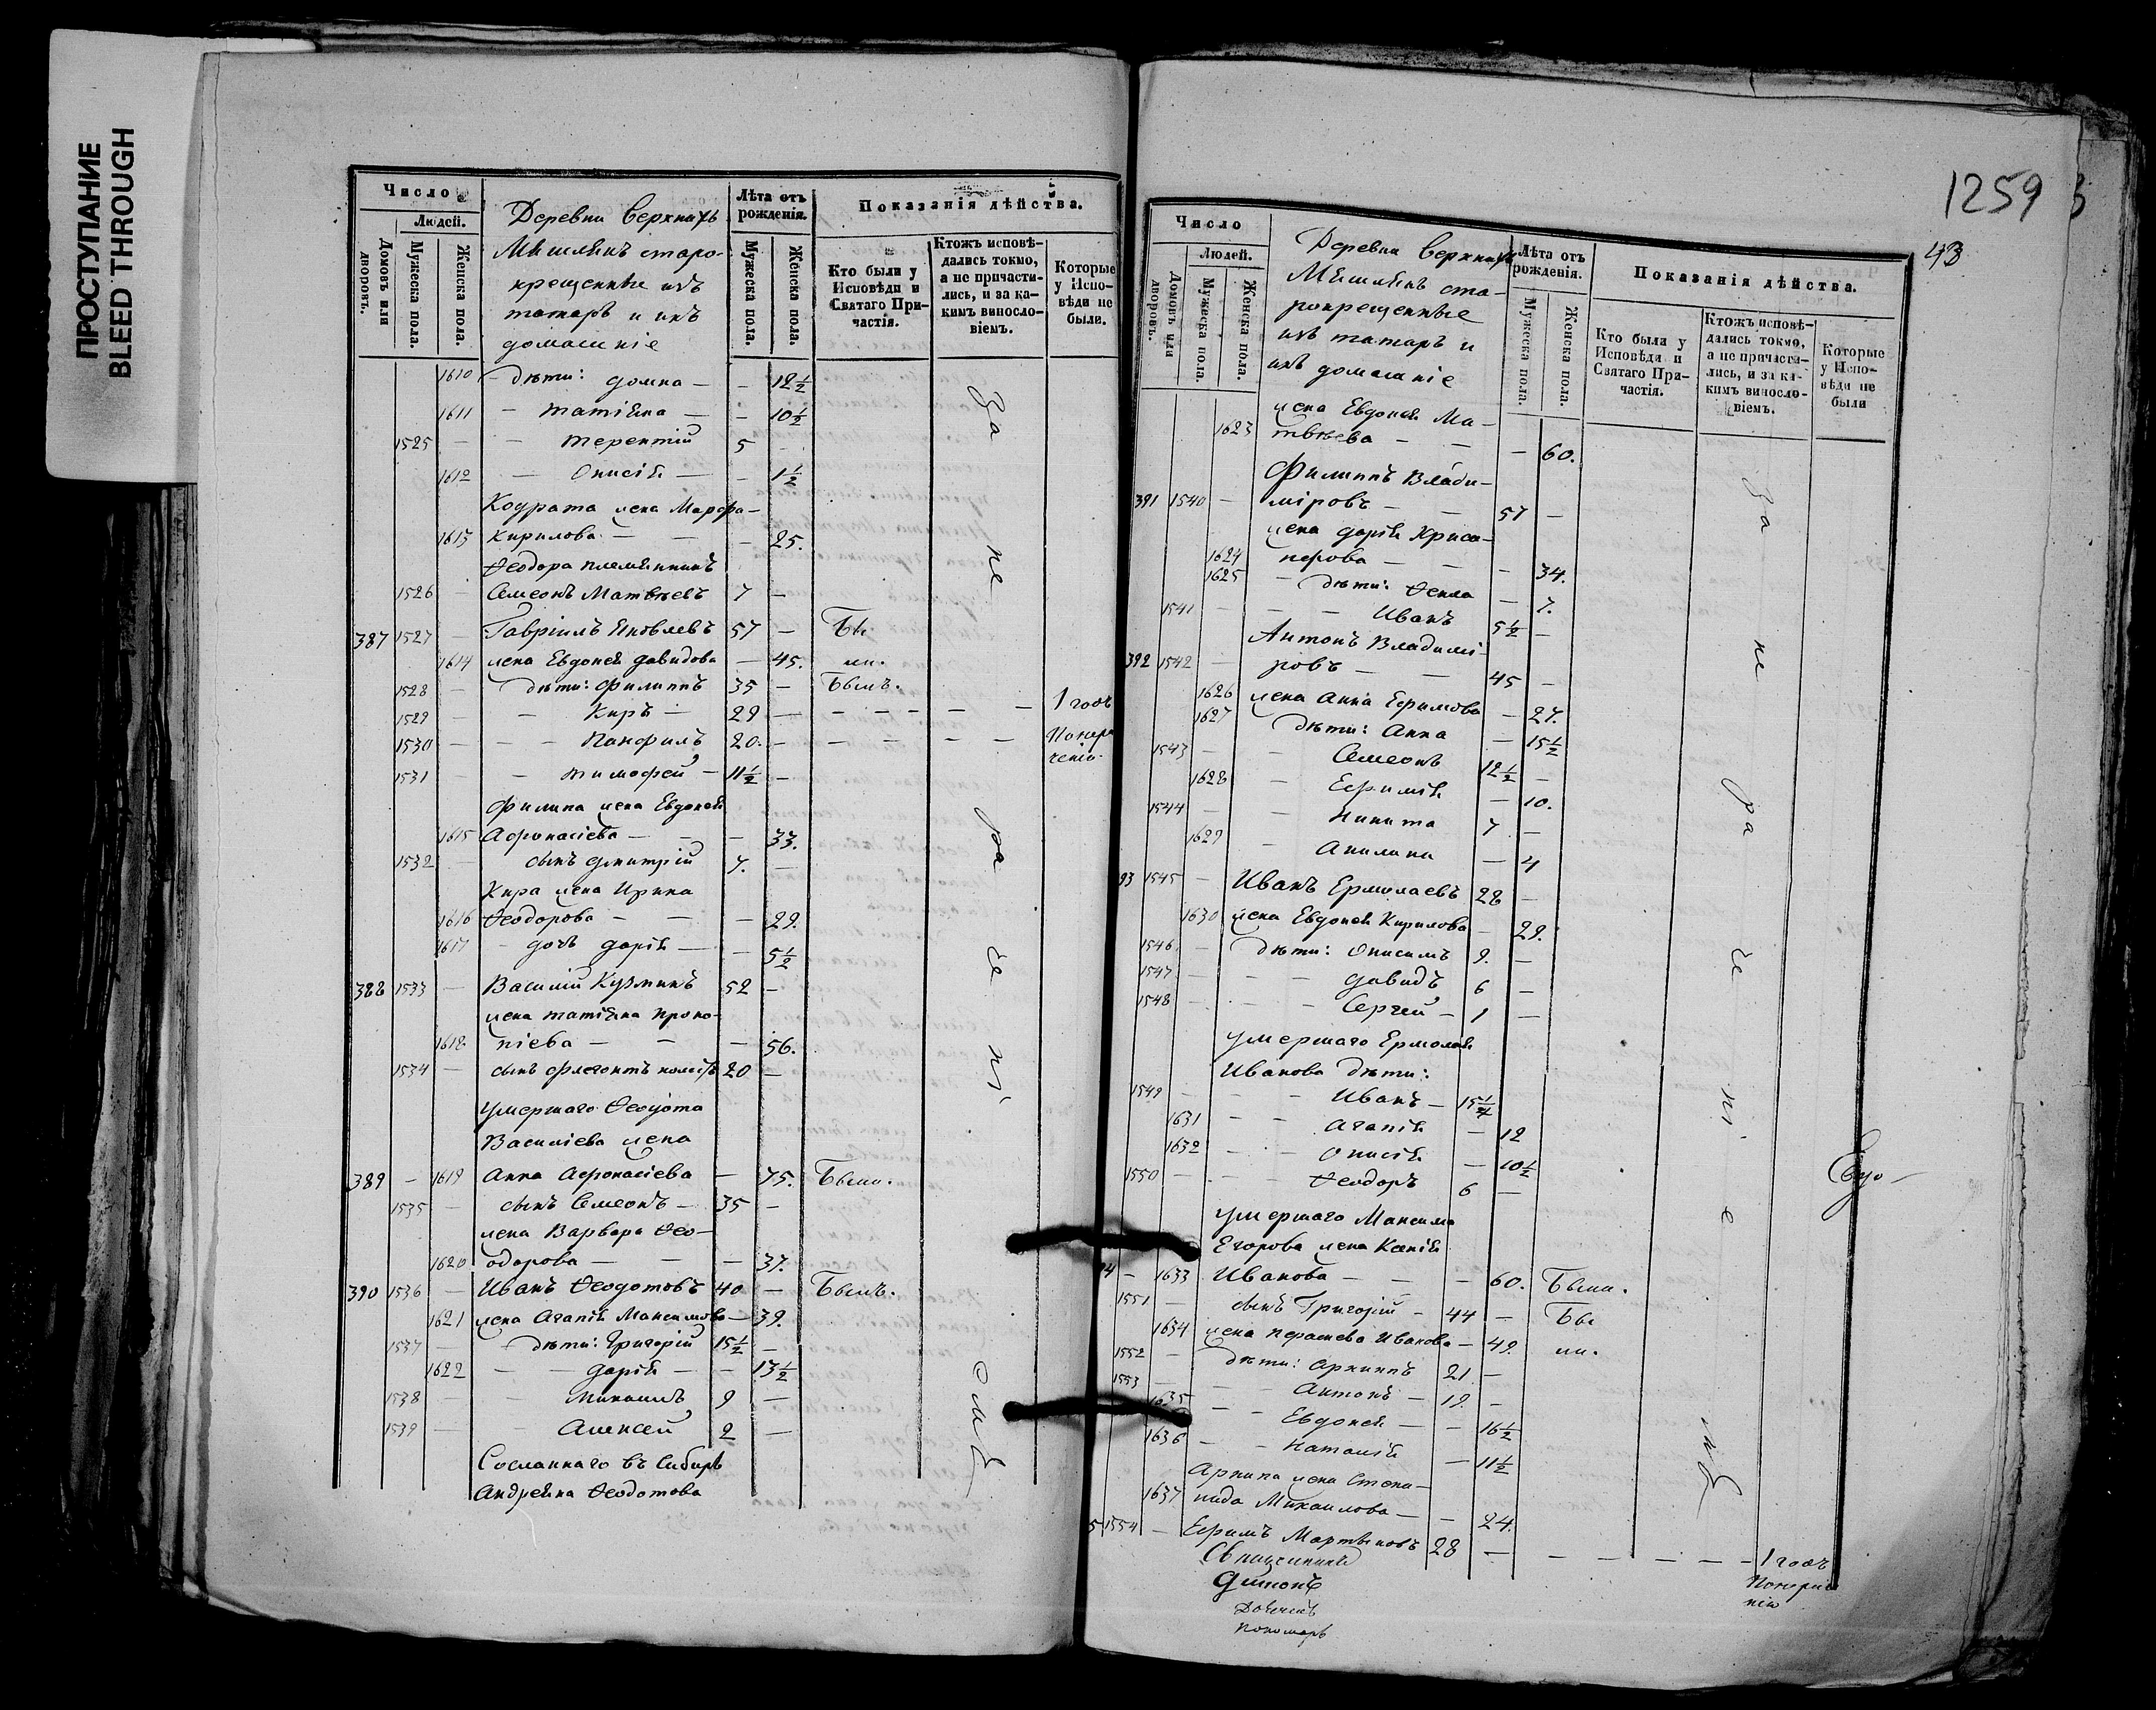 ПРОСТУПАНИЕ
BLEED THROUGH
Число
Людей.
Домовъ или дворовъ.
Мужеска пола.
Женска пола.
Деревни Верхнихъ
Мишлянъ старо-
крещенные изъ
татаръ и ихъ
домашніе
Лѣта отъ рожденія.
Мужеска пола.
Женска пола.
Показанія дѣйства.
Кто были у Исповѣди и Святаго При-частія.
Ктожъ исповѣ-дались токмо, а не причасти-лись, и за ка-кимъ винословіемъ.
Которые у Испо-вѣди не были.
1610 – дѣти: Домна – – 12½
1611 – Татіяна – – 10½
1525 – – Терентій 5
1612 – Онисія – – 1½
Кодрата жена Марфа
1613 Кирилова – – – 25.
Ѳеодора племянникъ
1526 – Семеонъ Матвѣевъ 7 –
387 1527 – Гавріилъ Яковлевъ 57 – Бы
1614 жена Евдокея Давидова – 45. ли.
1528 – дѣти: Филиппъ 35 – Былъ.
1529 – – Киръ – 29 – – – – – – 1 годъ
1530 – – – Панфилъ 20. – – – – – Понера
чению.
1531 – – Тимофей – 11½ –
Филипа жена Евдокея
1615 Афонасіева – – – 33.
1532 – сынъ Дмитрій 7. –
Кира жена Ирина
1616 Ѳеодорова – – – 29.
1617 – дочь Дарія – – 5½
388 1533 – Василій Кузминъ 52 –
жена Татіяна Проко-
1618. піева – – – 56.
1534 – сынъ Флегонтъ 20 –
Умершаго Ѳеодота
Василіева жена
389 – 1619 Анна Афонасіева – 75. Была.
1535 – сынъ Семеонъ – 35 –
жена Варвара Ѳео-
1620 одорова – – – 37.
390 1536 – Иванъ Ѳеодотовъ 40 – Былъ.
1621 жена Агапія Максимова – 39.
1537 – – дѣти: Григорій 15½ –
1622 – – Дарія – – 13½
1538 – – Михаилъ 9 –
1539 – – Алексей 2 –
Сосланнаго въ Сибирь
Андреяна Ѳеодотова
За не ра че ні
1259
43
Число
Людей.
Домовъ или дворовъ.
Мужеска пола.
Женска пола.
Деревни Верхнихъ
Мишлянъ ста-
рокрещенные
изъ татаръ и
ихъ домашніе
Лѣта отъ рожденія.
Мужеска пола.
Женска пола.
Показанія дѣйства.
Кто были у Исповѣди и Святаго При-частія.
Ктожъ исповѣ-дались токмо, а не причасти-лись, и за ка-кимъ винословіемъ.
Которые у Испо-вѣди не были
жена Евдокея Ма-
1623 твѣева – – – 60.
Филиппъ Влади-
391 1540 – міровъ – – 57 –
жена Дарія Хриса-
1624 нфова – – – 34.
1625 – дѣти: Ѳекла – 7.
1541 – – – Иванъ 5½ –
Антонъ Владимі-
392 1542 – ровъ – – 45 –
1626 жена Анна Ефимова – 27.
1627 дѣти: Анна – 15½
1543 – – Семеонъ 12½ –
1628 – Ефимія – 10.
1544 – – Никита 7 –
1629 – Акилина – 4
93 1545 – Иванъ Ермолаевъ 28 –
1630 жена Евдокея Кирилова – 29.
1546 – дѣти: Онисимъ 9. –
1547 – – – Давидъ 6 –
1548 – – – Сергей – 1 –
Умершаго Ермолая
Иванова дѣти:
1549 – – – Иванъ – 15½
1631 – – Агапія – 12
1632 – – Онисія – 10½
1550 – – – Ѳеодоръ 6 –
Умершаго Максима
Егорова жена Ксенія
94 – 1633 Иванова – – – 60. Была.
1551 – сынъ Григорій – 44 – Бы
1634 жена Парасева Иванова – 49. ли.
1552 – дѣти: Архиппъ 21 –
1553 – – Антонъ – 19. –
1635 – – Евдокея – – 16½
1636 – – Наталія – 11½
Архипа жена Степа-
1637 нида Михаилова – – 24.
5 1554 – Ефимъ Мартыновъ 28 – – – – – – 1 годъ
Понераче
нію
За не ра че ні е
Священникъ
Димонъ
пономарь